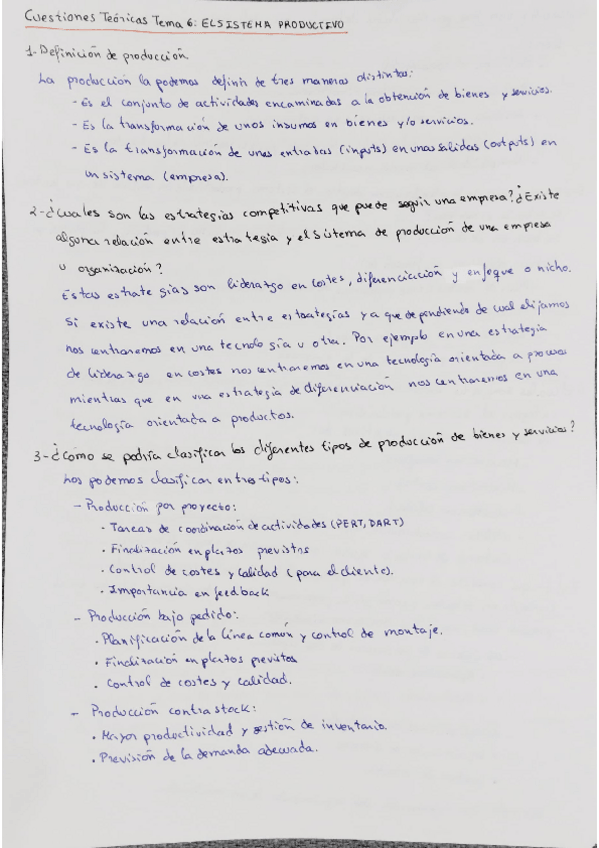 Cuestiones Teóricas Tema 6: EL SISTEMA PRODUCTIVO
1- Definición de producción.
La producción la podemos definir de tres maneras distintas:
- Es el conjunto de actividades encaminadas a la obtención de bienes y servicios.
- Es la transformación de unos insumos en bienes y/o servicios.
- Es la transformación de unas entradas (inputs) en unas salidas (outputs) en
un sistema (empresa).
2- ¿Cuales son las estrategias competitivas que puede seguir una empresa? ¿Existe
alguna relación entre estrategia y el sistema de producción de una empresa
u organización?
Estas estrategias son liderazgo en costes, diferenciación y enfoque o nicho.
Si existe una relación entre estrategias ya que dependiendo de cual elijamos
nos centraremos en una tecnología u otra. Por ejemplo en una estrategia
de liderazgo en costes nos centraremos en una tecnología orientada a procesos
mientras que en una estrategia de diferenciación nos centraremos en una
tecnología orientada a productos.
3- ¿Cómo se podría clasificar los diferentes tipos de producción de bienes y servicios?
Los podemos clasificar en tres tipos:
- Producción por proyecto:
· Tareas de coordinación de actividades (PERT, DART)
· Finalización en plazos previstos
· Control de costes y calidad (para el cliente).
· Importancia en feedback
- Producción bajo pedido:
· Planificación de la línea común y control de montaje.
· Finalización en plazos previstos
· Control de costes y calidad.
- Producción contra stock:
· Mayor productividad y gestión de inventario.
· Previsión de la demanda adecuada.